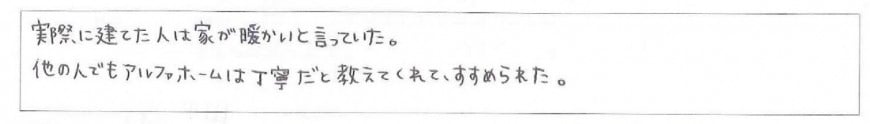 実際に建てた人は家が暖かいと言っていた。
他の人でもアルファホームは丁寧だと教えてくれて、すすめられた。